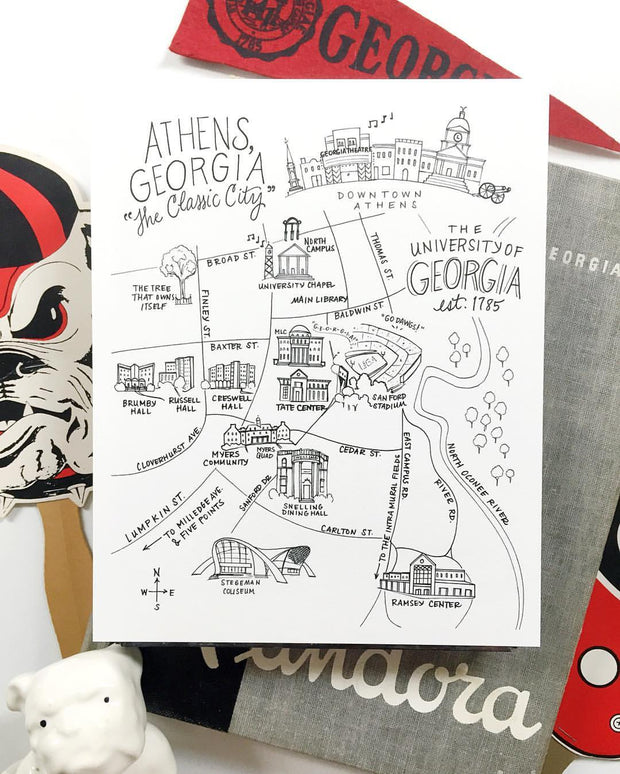 GEORGIA
1785
ATHENS,
GEORGIA
"The Classic City"
GEORGIA THEATRE
DOWNTOWN
ATHENS
THE
UNIVERSITY OF
GEORGIA
est. 1785
EORGIA
NORTH
CAMPUS
BROAD ST.
UNIVERSITY CHAPEL
THOMAS ST.
THE TREE
THAT OWNS
ITSELF
FINLEY ST.
MAIN LIBRARY
BALDWIN ST.
"GO DAWGS!"
"G-E-O-R-G-I-A"
MLC
UGA
BAXTER ST.
BRUMBY
HALL
RUSSELL
HALL
CRESWELL
HALL
TATE CENTER
SANFORD
STADIUM
CLOVERHURST AVE.
MYERS
COMMUNITY
MYERS
QUAD
CEDAR ST.
SNELLING
SNELLING
DINING HALL
SANFORD DR.
EAST CAMPUS RD.
TO THE INTRAMURAL FIELDS
RIVER RD.
NORTH OCONEE RIVER
LUMPKIN ST.
TO MILLEDGE AVE
& FIVE POINTS
CARLTON ST.
STEGEMAN
COLISEUM
RAMSEY CENTER
N
W E
S
Pandora